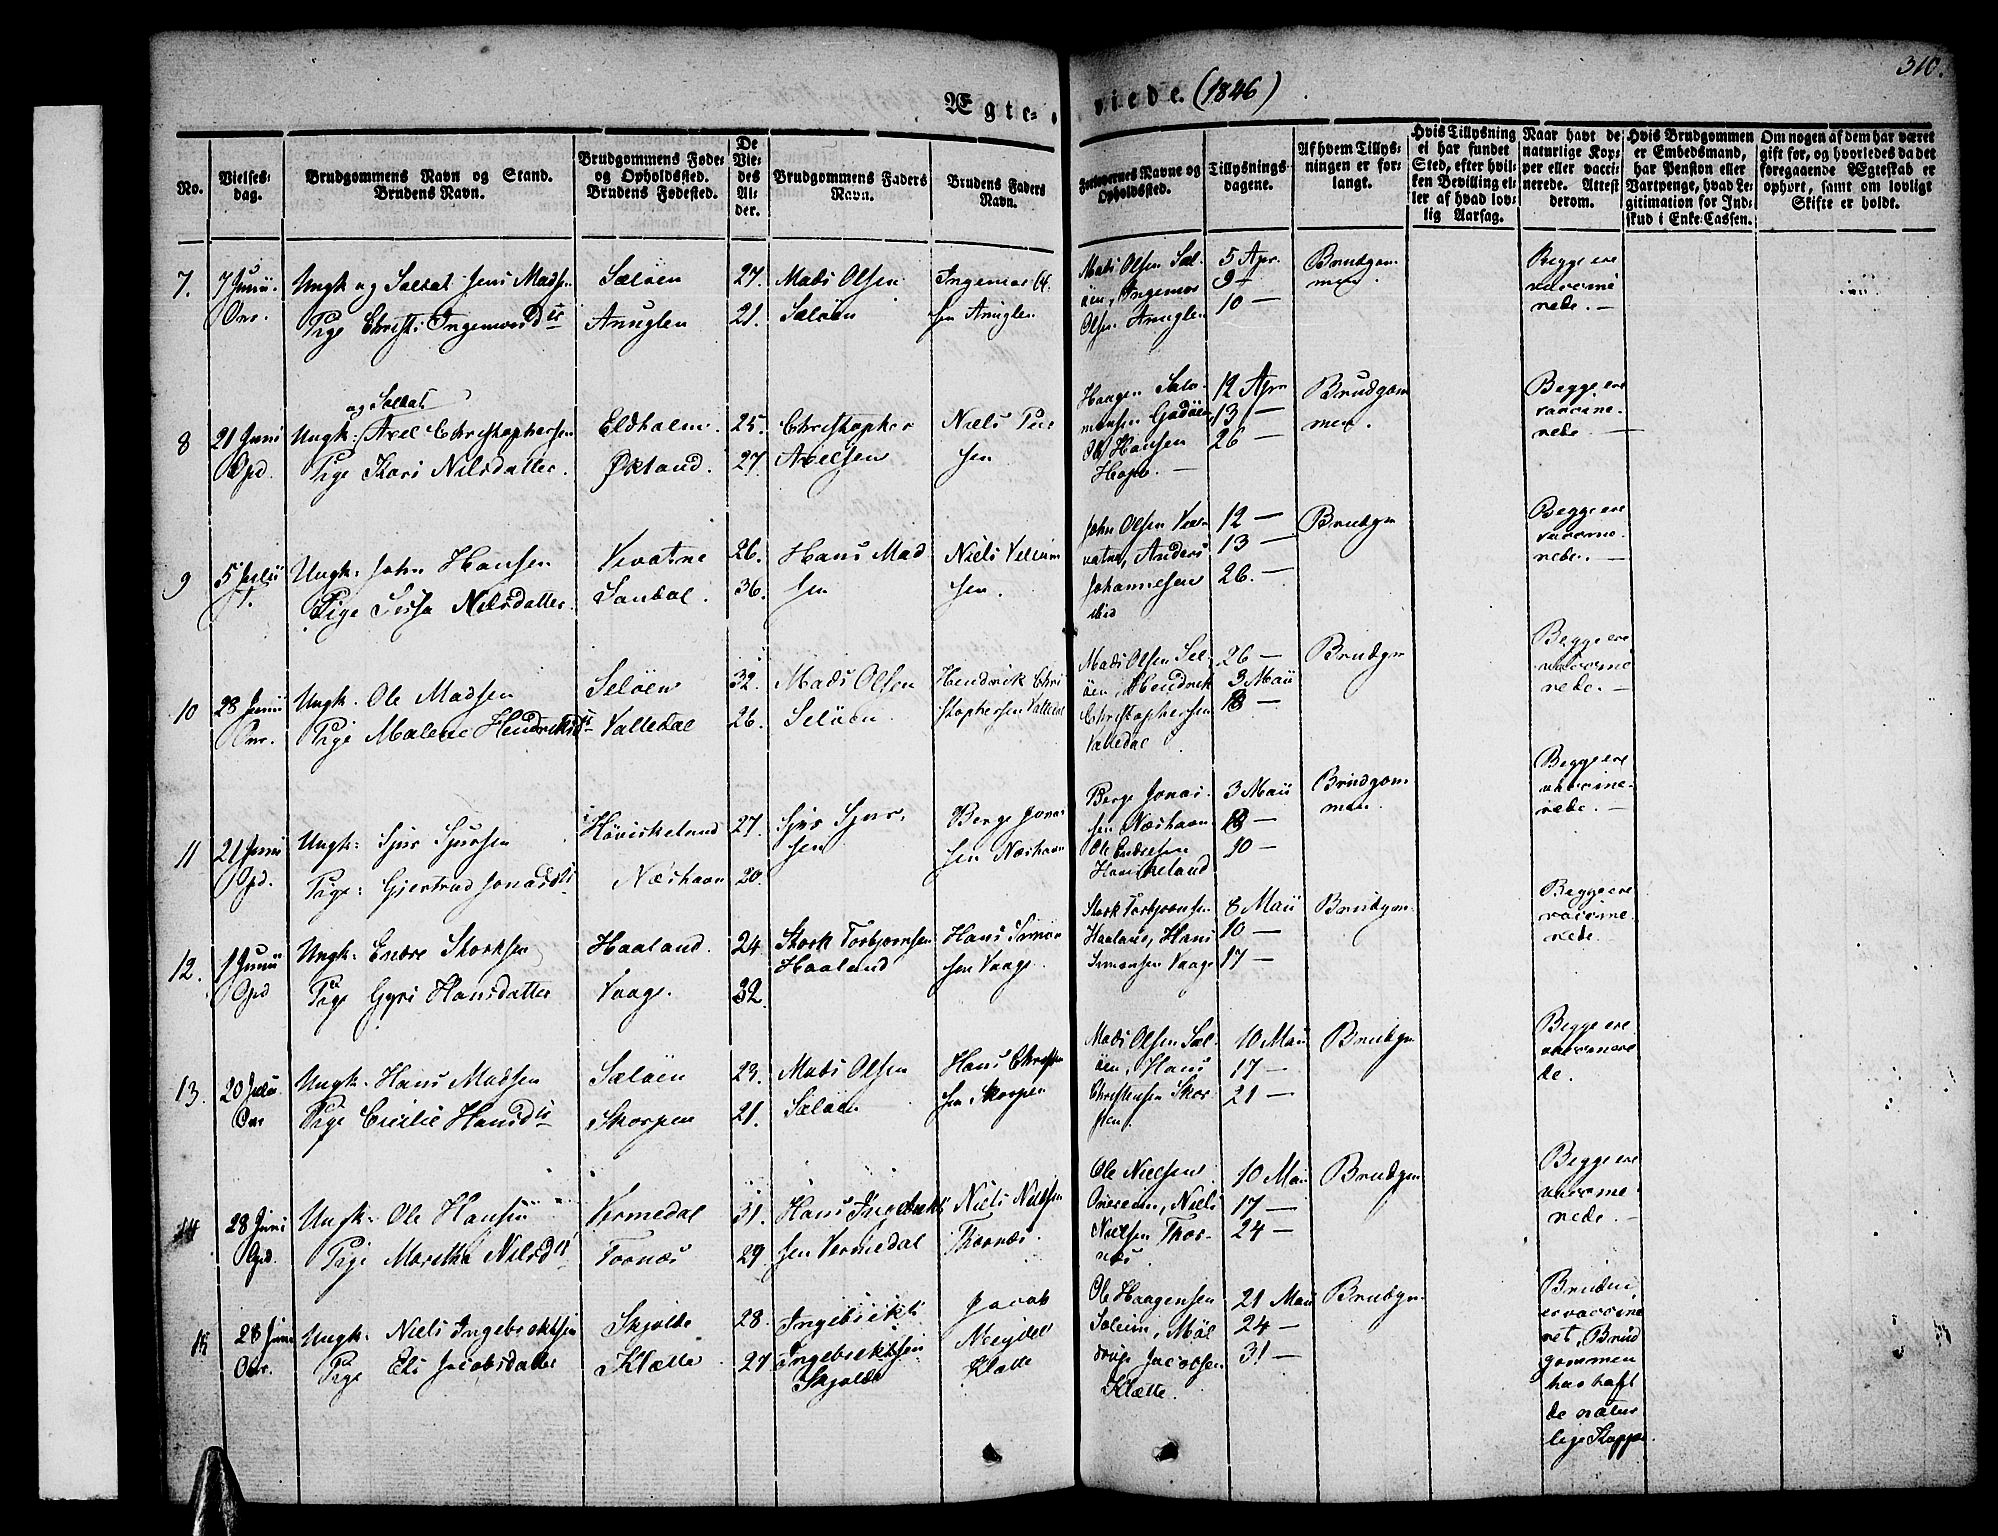 310.
Ægte- viede. (1846)
No.
Vielses-
dag.
Brudgommens Navn og Stand.
Brudens Navn.
Brudgommens Føde-
og Opholdssted.
Brudens Fødested.
De
Vie-
des
Al-
der.
Brudgommens Faders
Navn.
Brudens Faders
Navn.
Forlovernes Navne og
Opholdssted.
Tillysnings-
dagene.
Af hvem Tillys-
ningen er for-
langt.
Hvis Tillysning
ei har fundet
Sted, efter hvil-
ken Bevilling el-
ler af hvad lov-
lig Aarsag.
Naar havt de
naturlige Kop-
per eller vacci-
nerede. Attest
derom.
Hvis Brudgommen
er Embedsmand,
har Pension eller
Vartpenge, hvad Le-
gitimation for Ind-
skud i Enke-Cassen.
Om nogen af dem har været
gift før, og hvorledes da det
foregaaende Ægteskab er
ophørt, samt om lovligt
Skifte er holdt.
7.
7 Junii
Onr.
Ungk og Soldat Jens Madsen
Pige Christi Ingemorsd
Sæløen
Anuglen
27.
21.
Mads Olsen
Sæløen
Ingemor Ol
sen Anuglen
Mads Olsen Sæl
øen, Ingemor
Olsen Anuglen
5 Apr
9 —
10 —
Brudgom
men
Begge ere
vaccine
rede. —
8
21 Juni
Opd.
og Soldat
Ungk: Axel Christophersen
Pige Kari Nilsdatter.
Eldholm.
Økland.
25.
27
Christopher
Axelsen
Niels
sen
Haagen Salo-
monsen Godøen
Ole Hansen
12 Apr
13 —
26 —
Brudgom
men.
Begge ere
vaccine-
rede —
9
5 Julii
Ungk: John Hansen
Pige Sissa Nilsdatter.
Qvatne
Sandal.
26.
36.
Hans Mad
sen
Niels
sen.
John Olsen
Anders
Johannesen
12 —
13 —
26. —
Brudgm
Begge ere
vaccine
rede. —
10
28 Junii
Onr.
Ungk. Ole Madsen
Pige Malene Hendriksd
Seløen
Valledal
32.
26.
Mads Olsen
Seløen
Hendrik Chri
stophersen Valledal
Mads Olsen Sel-
øen, Hendrik
Christophersen
Valledal
26 —
3 Maii
—
Brudgm
Begge ere
vaccine
rede. —
11
21 Juni
Opd.
Ungk: Sjur Sjursen
Pige: Gjertrud Jonasd
Høviskeland
Næshavn
27.
20.
Sjur Sjur-
sen
Berge Jonas
sen Næshavn
Berge Jonas-
sen Næshavn
Ole Endresen
3 Maii
—
10 —
Brudgom
men.
Begge ere
vaccine-
rede. —
12.
1 Junii
Opd
Ungk: Endre Storksen
Pige Gyri Hansdatter
Haaland.
Vaage.
24.
32.
Stork Torbjørnsen
Haaland
Hans Simon
sen Vaage.
Stork Torbjørnsen
Haaland, Hans
Simonsen Vaage
8 Maii
10 —
17 —
Brudgm
Begge ere
vaccine-
rede.
13.
20 Julii
Onr
Ungk. Hans Madsen
Pige Cicilie Hansd
Sæløen
Skorpen
23.
21.
Mads Olsen
Sæløen
Hans Christen
sen Skorpen
Mads Olsen Sæl-
øen, Hans
Christensen Skor-
pen.
10 Maii
17 —
21 —
Brudgm
Begge ere
vaccinere
de.
14
28 Juni
Opd.
Ungk: Ole Hansen
Pige Maretha Nilsd
Vermedal
Tornæs
31.
29
Hans Ingebrikt
sen Vermedal
Niels Nielsen
Thornæs.
Ole Nielsen
Niels
Nielsen Thor-
næs.
10 Mai
17 —
24 —
Brudgm
Begge ere
vaccine-
rede. —
15
28 Juni
Onr.
Ungk: Niels Ingebriktsen
Pige Eli Jacobsdatter
Skjolde
Klætte
28.
27
Ingebrikt
Ingebriktsen
Skjolde
Jacob
Klætte
Ole Haagensen
Jacobsen
Klætte
21 Maii
24 —
31 —
Brudgm
Bruden
er vaccine
ret, Brud
gommen
har haft
de natur
lige Kopper.